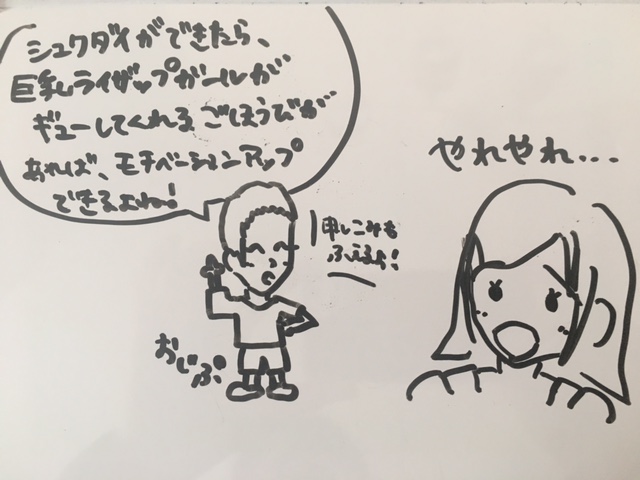 シュクダイができたら、
巨乳ライザップガールが
ギューしてくれるごほうびが
あれば、モチベーションアップ
できるよね!
申しこみも
ふえるよ!
おじぷ
やれやれ...